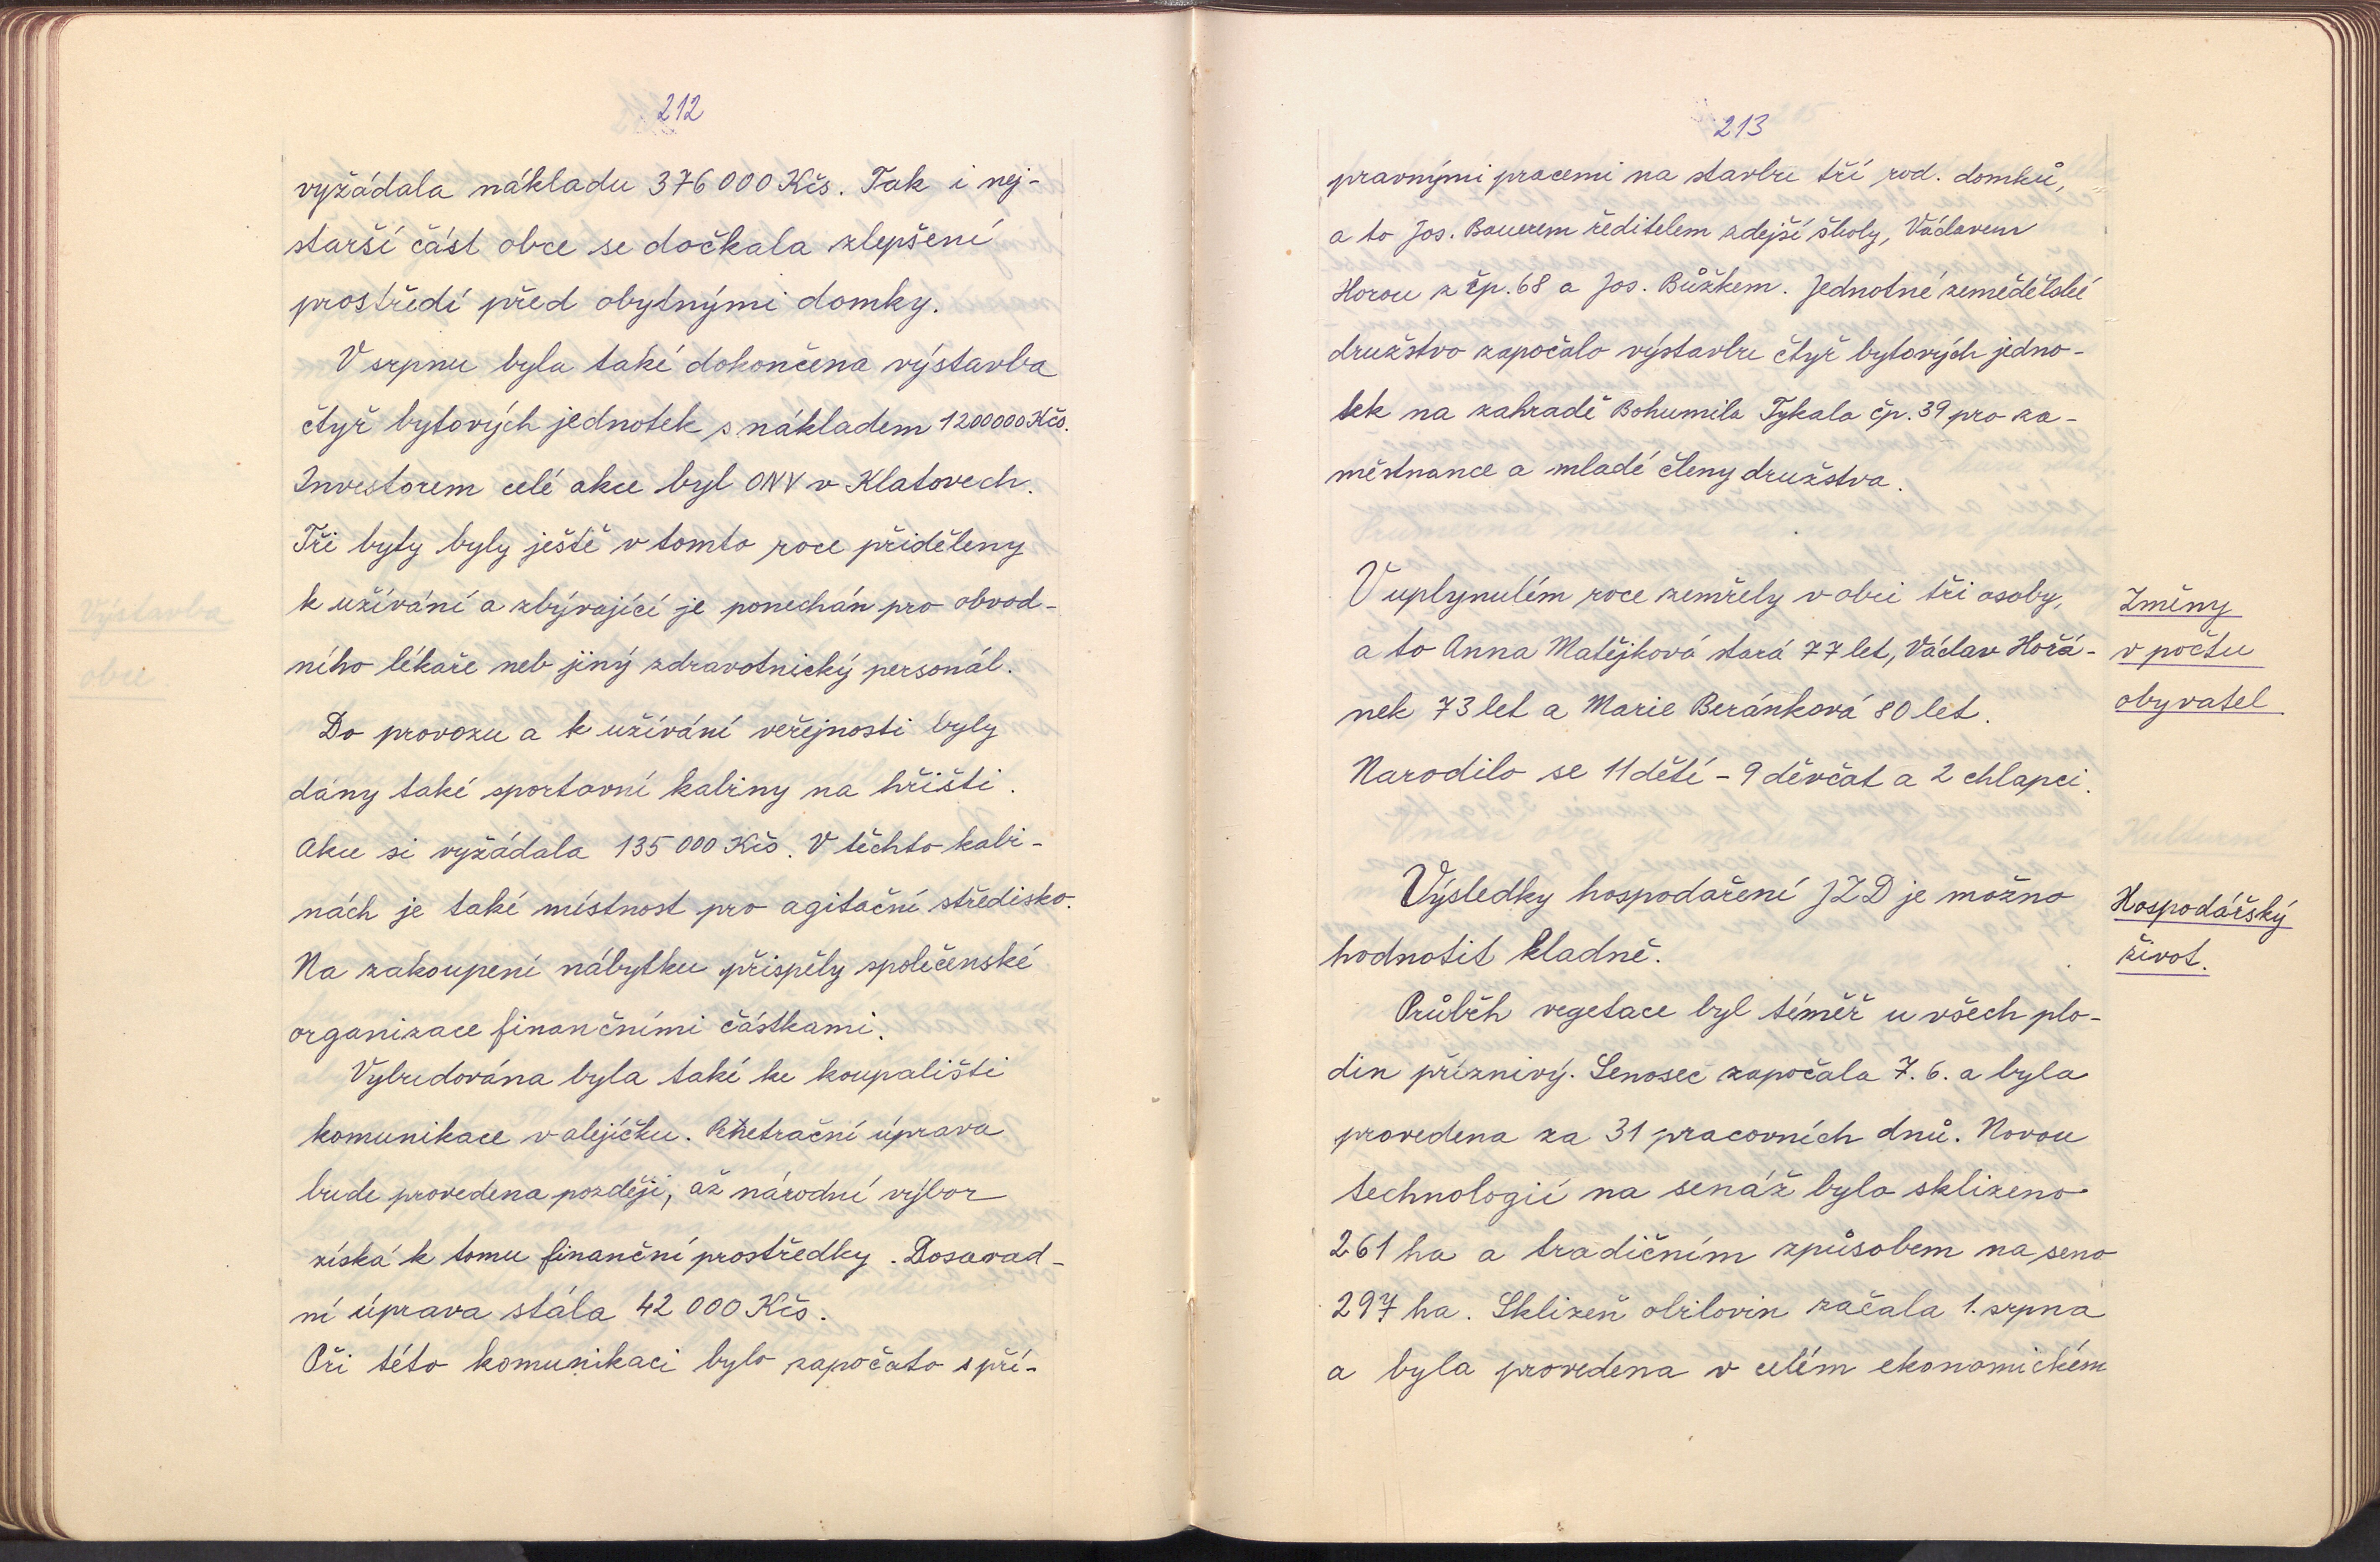 212
vyžádala nákladu 376 000 Kčs. Tak i nej-
starší část obce se dočkala zlepšení
prostředí před obytnými domky.
V srpnu byla také dokončena výstavba
čtyř bytových jednotek s nákladem 1200000 Kčs.
Investorem celé akce byl ONV v Klatovech.
Tři byty byly ještě v tomto roce přiděleny
k užívání a zbývající je ponechán pro obvod-
ního lékaře neb jiný zdravotnický personál.
Do provozu a k užívání veřejnosti byly
dány také sportovní kabiny na hřišti.
Akce si vyžádala 135 000 Kčs. V těchto kabi-
nách je také místnost pro agitační středisko.
Na zakoupení nábytku přispěly společenské
organizace finančními částkami.
Vybudována byla také ke koupališti
komunikace v alejíčku. Penetrační úprava
bude provedena později, až národní výbor
získá k tomu finanční prostředky. Dosavad-
ní úprava stála 42 000 Kčs.
Při této komunikaci bylo započato s pří-
213
pravnými pracemi na stavbu tří rod. domků,
a to Jos. Bauerem ředitelem zdejší školy, Václavem
Horou z čp. 68 a Jos. Bůžkem. Jednotné zemědělské
družstvo započalo výstavbu čtyř bytových jedno-
tek na zahradě Bohumila Tykala čp. 39 pro za-
městnance a mladé členy družstva.
V uplynulém roce zemřely v obci tři osoby,
a to Anna Matějková stará 77 let, Václav Hořá-
nek 73 let a Marie Beránková 80 let.
Narodilo se 11 dětí - 9 děvčat a 2 chlapci.
Změny
v počtu
obyvatel
Výsledky hospodaření JZD je možno
hodnotit kladně.
Hospodářský
život.
Průběh vegetace byl téměř u všech plo-
din příznivý. Senoseč započala 7. 6. a byla
provedena za 31 pracovních dnů. Novou
technologií na senáž bylo sklizeno
261 ha a tradičním způsobem na seno
297 ha. Sklizeň obilovin začala 1. srpna
a byla provedena v celém ekonomickém